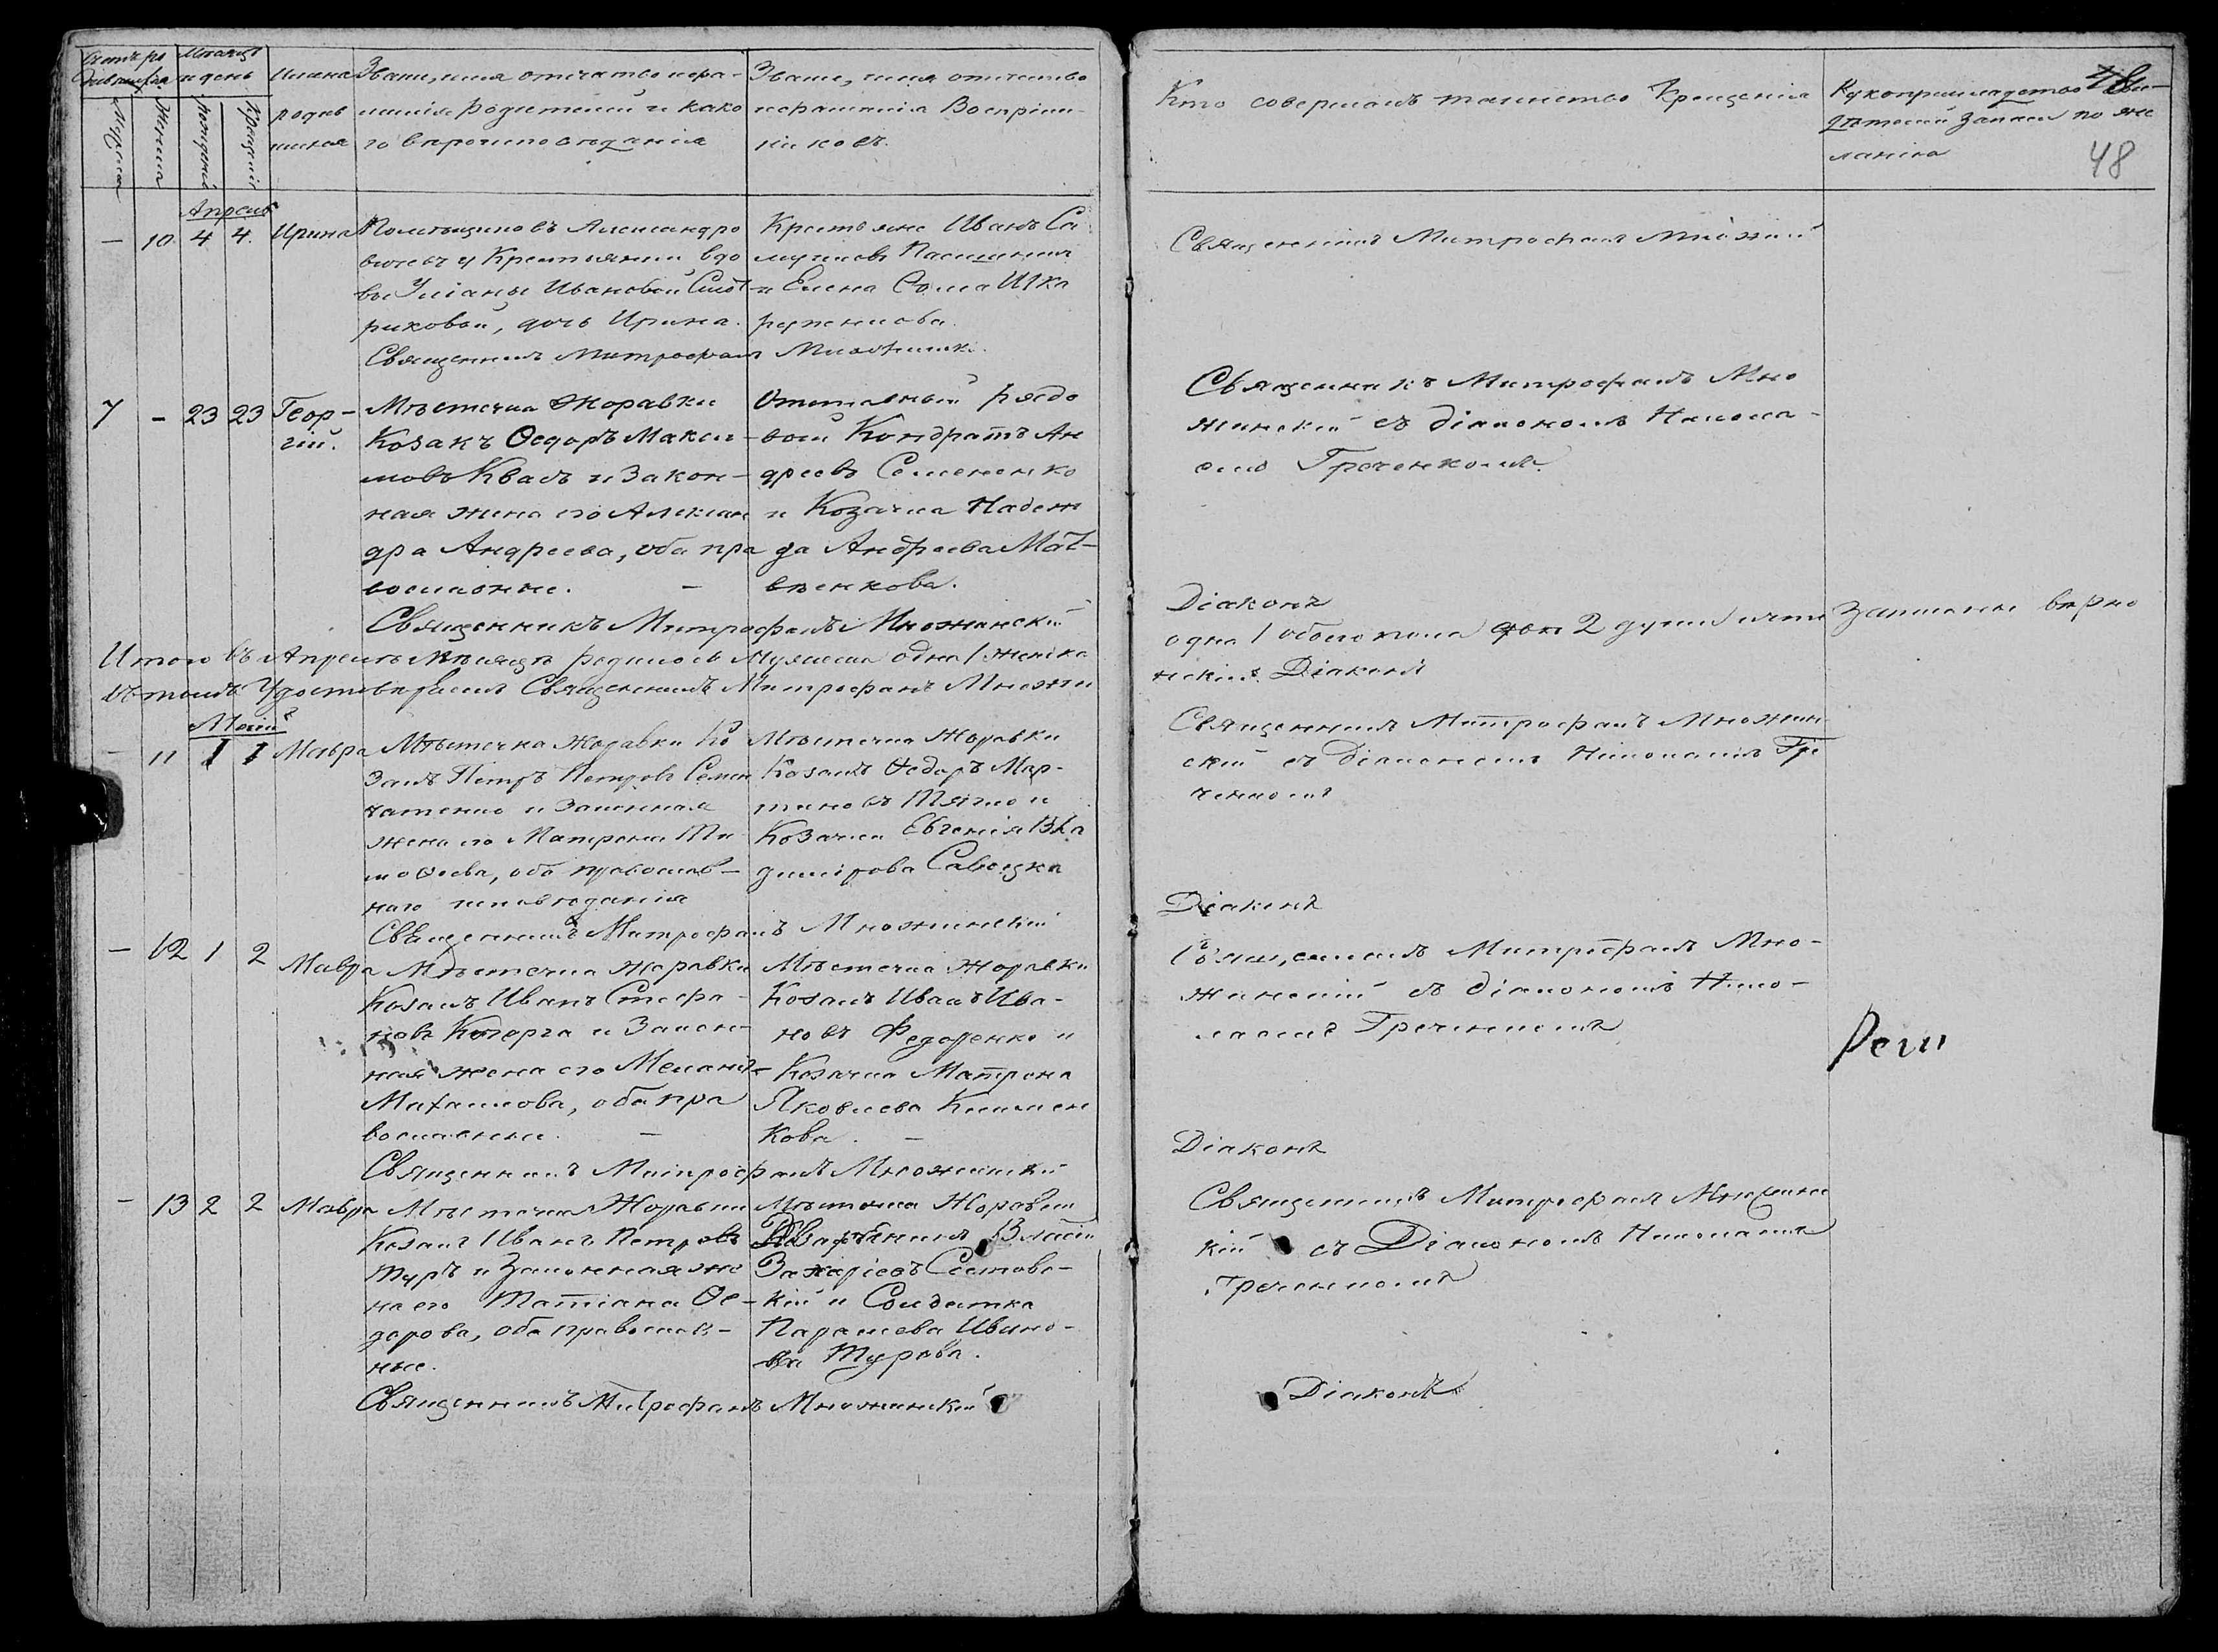 Счетъ ро
дившихся
Мѣсяцъ
и день
Мужеска
Женска
Рожденія
Крещенія
Имена
родив
шихся
Званіе, имя отчество и фа-
милія родителей и како
го вѣроисповѣданія
Званіе, имя отчество
и фамилія Воспріем-
никовъ.
Апрель
— 10 4 4. Ирина
Помѣщиковъ Александро
вичевъ у Крестьянки вдо
вы Ульяны Ивановой
риковой, дочь Ирина.
Священникъ Митрофанъ
Крестьяне Иванъ Са
муиловъ
и Елена
7 — 23 23 Геор-
гій.
Мѣстечка Жоравки
Козакъ Ѳедоръ Макси-
мовъ Квасъ и Закон-
ная жена его Алексан
дра Андреева, оба пра
вославные. —
Священникъ Митрофанъ Множинскій
Отставный рядо
вой Кондратъ Ан
дреевъ Семененко
и Козачка Надеж
да Андреева Мат-
вѣенкова.
Итого въ Апрелѣ Мѣсяцѣ родилось Мужеска одна 1 женска
въ томъ Удостовѣряемъ Священникъ Митрофанъ Множин
Маій
— 11 1 1 Мавра
Мѣстечка Жоравки Ко
закъ Петръ Петровъ
и Законная
жена его Матрена Ти
моѳеева, оба православ-
наго исповѣданія
Священникъ Митрофанъ Множинскій
Мѣстечка Жоравки
Козакъ Ѳедоръ Мар-
тиновъ Тягно и
Козачка Евгенія Вла
димірова Савецка
— 12 1 2 Мавра
Мѣстечка Жоравки
Козакъ Иванъ Стефа-
новъ Кочерга и Закон-
ная жена его Меланія
Михайлова, оба пра
вославные. —
Священникъ Митрофанъ Множинскій
Мѣстечка Жоравки
Козакъ Иванъ Ива-
новъ Федоренко и
Козачка Матрона
Яковлева
кова. —
— 13 2 2 Мавра
Мѣстечка Жоравки
Козакъ Иванъ Петровъ
Туръ и Законная же
на его Татіана Ѳе-
дорова, оба православ-
ные.
Священникъ Митрофанъ Множинскій
Мѣстечка Жоравки
Дворянинъ
Захаріевъ
кій и Солдатка
Параскева Ивано-
ва Турова.
Кто совершалъ таинство Крещенія
Рукоприкладство сви-
дѣтелей записи по же
ланію
48
Священникъ Митрофанъ
Священникъ Митрофанъ Мно
жинскій съ діакономъ Никола-
емъ Греченкомъ.
Діаконъ
одна 1 обоего пола 2 души записаны вѣрно
нскій. Діаконъ
Священникъ Митрофанъ Множин
скій съ Діакономъ Николаемъ Гре
ченкомъ
Діаконъ
Священникъ Митрофанъ Мно-
жинскій съ діакономъ Нико-
лаемъ Греченкомъ
Діаконъ
Священникъ Митрофанъ Множинс
кій съ Діакономъ Николаемъ
Греченкомъ
Діаконъ